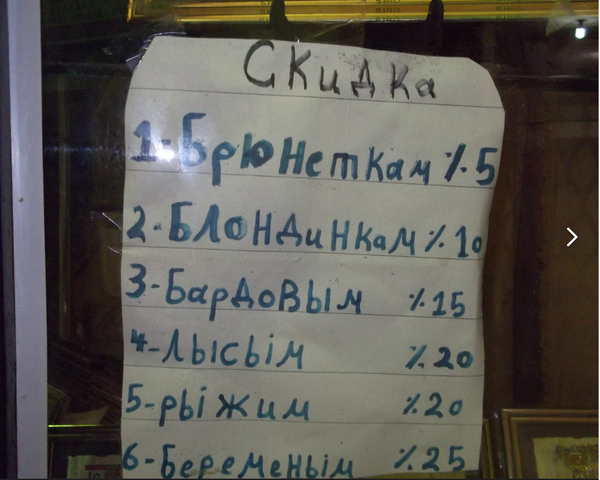 Скидка
1-Брюнеткам %5
2-Блондинкам %10
3-Бардовым %15
4-Лысым %20
5-рыжим %20
6-Беременым %25